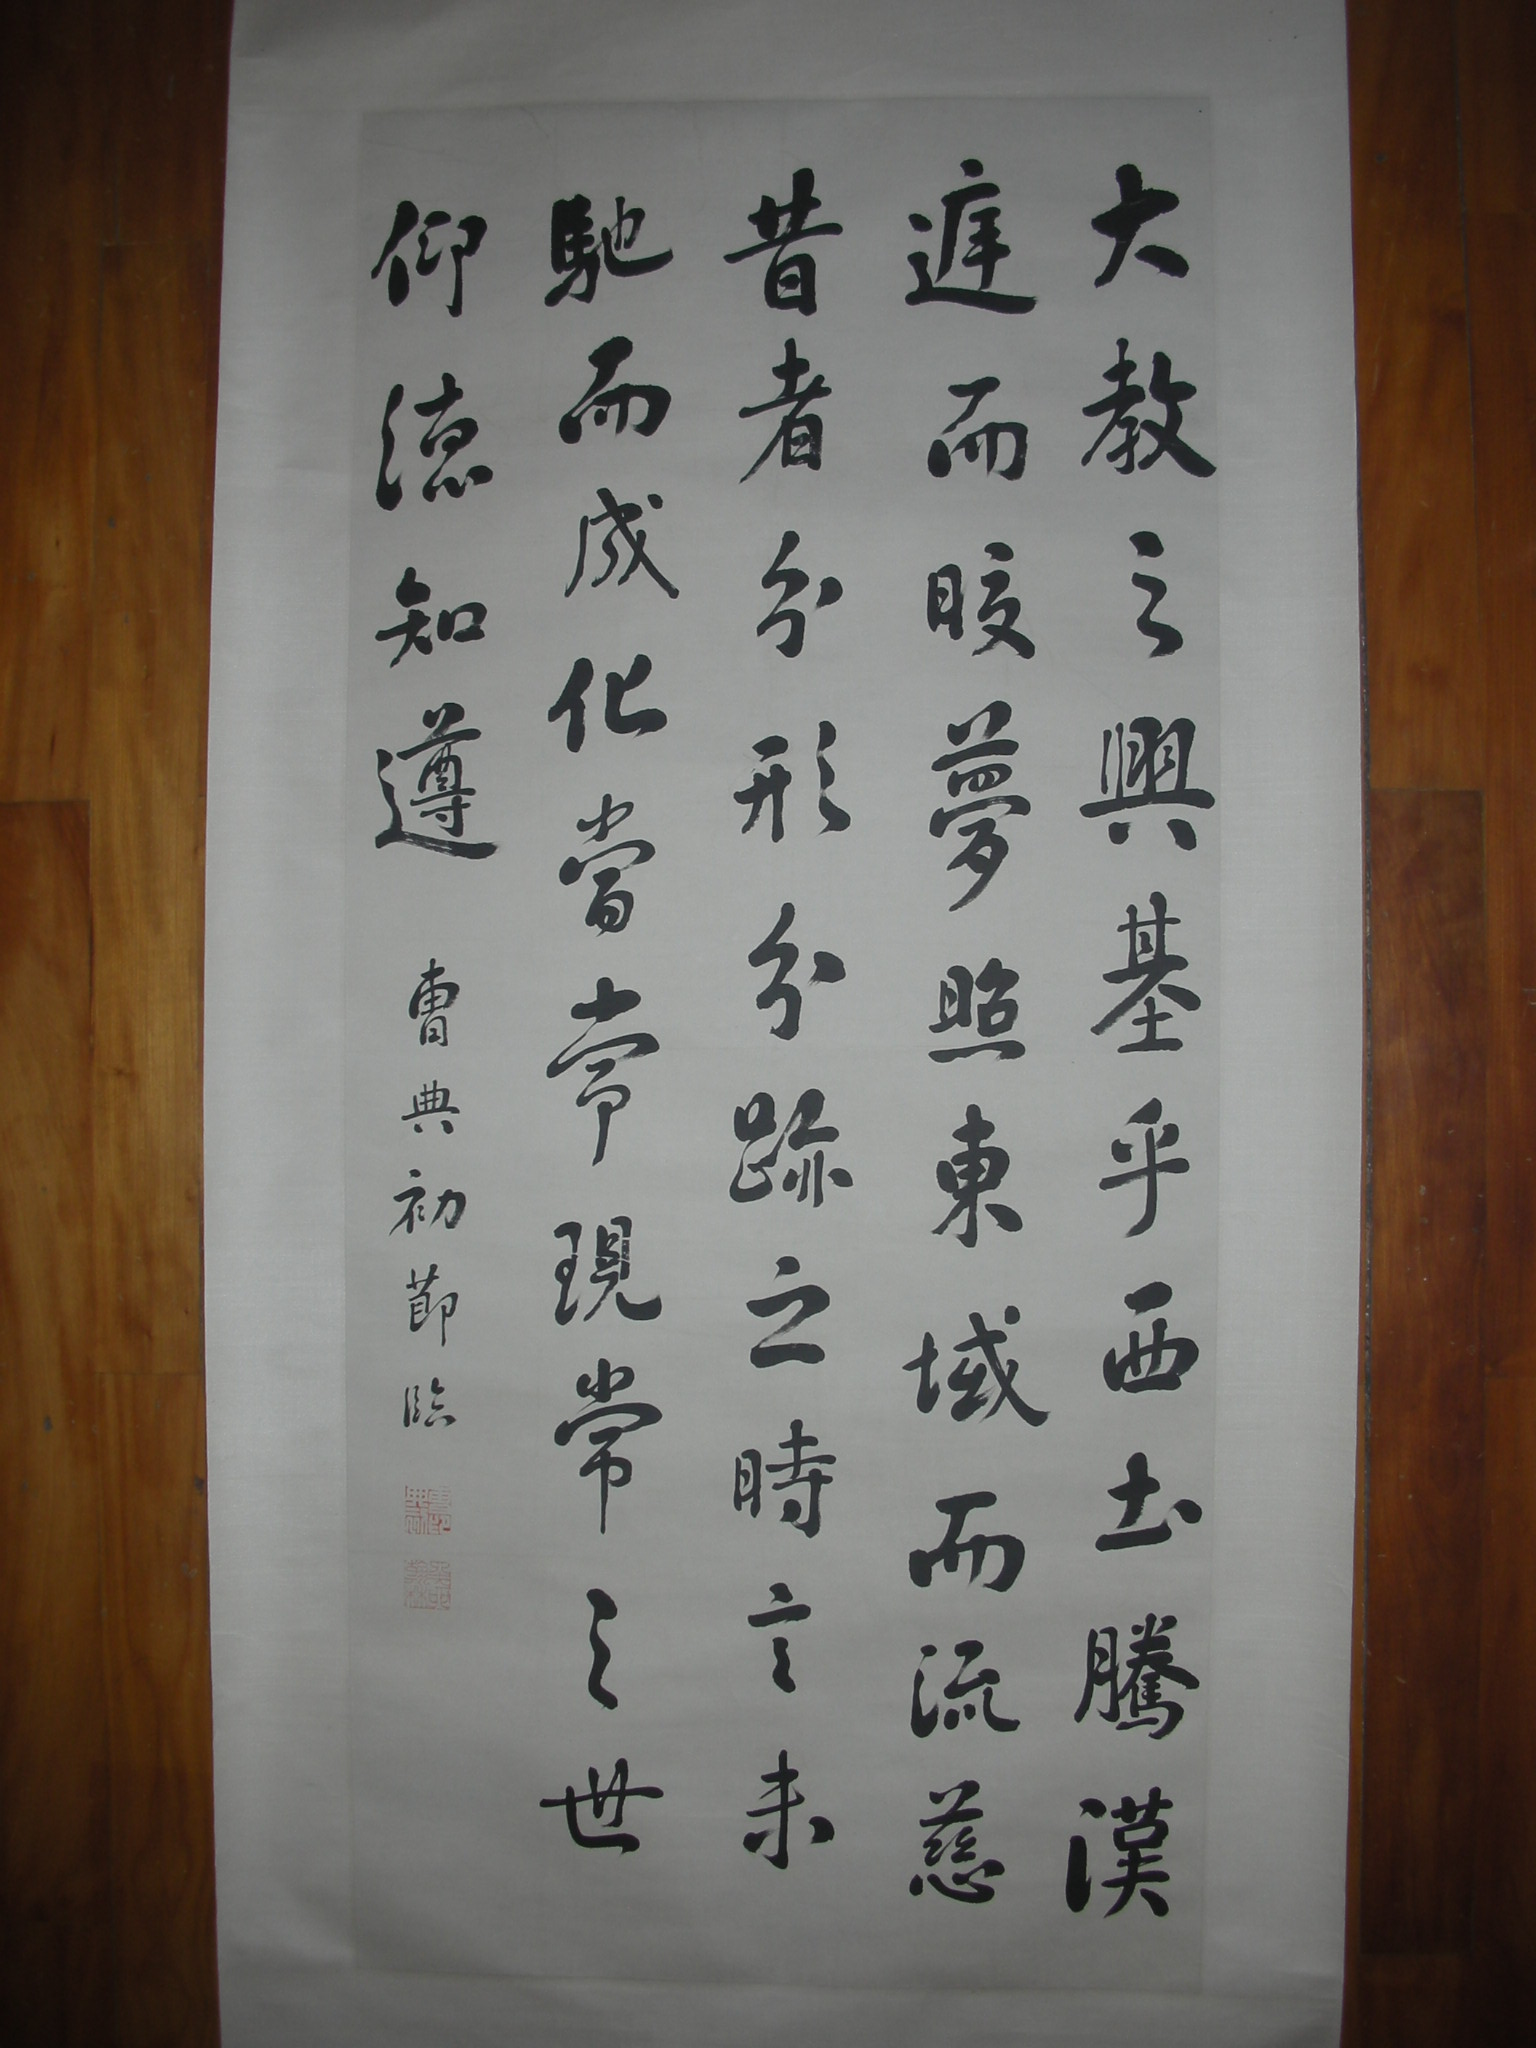 大教之興基乎西土騰漢
遅而皎夢照東域而流慈
昔者分形分跡之時言未
馳而成化當常常現常之世
仰德知遵
曹典初節臨